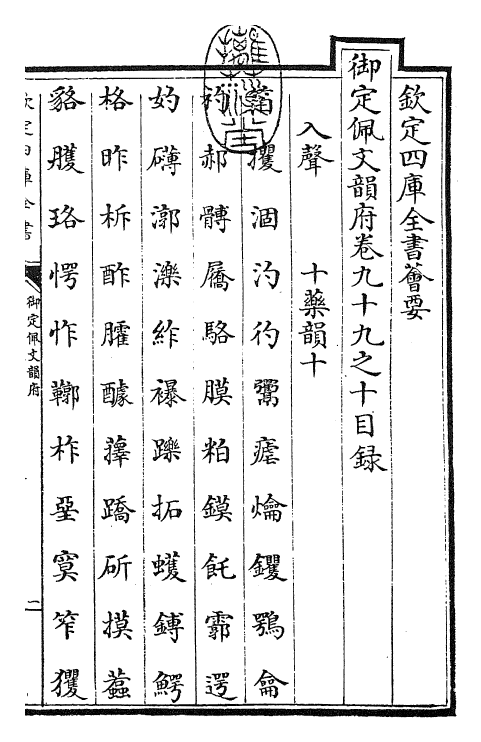 欽定四庫全書薈要
御定佩文韻府卷九十九之十目錄
入聲 十藥韻十
攫涸汋彴鸑瘧爚钁鶚龠
郝髆屩駱膜粕鏌飥霩遌
妁礴漷濼筰襮躒拓蠖鎛鰐
格昨柝酢臛醵蘀蹻斫摸蠚
貉臒珞愕怍鞹柞堊寞笮玃
御定佩文韻府